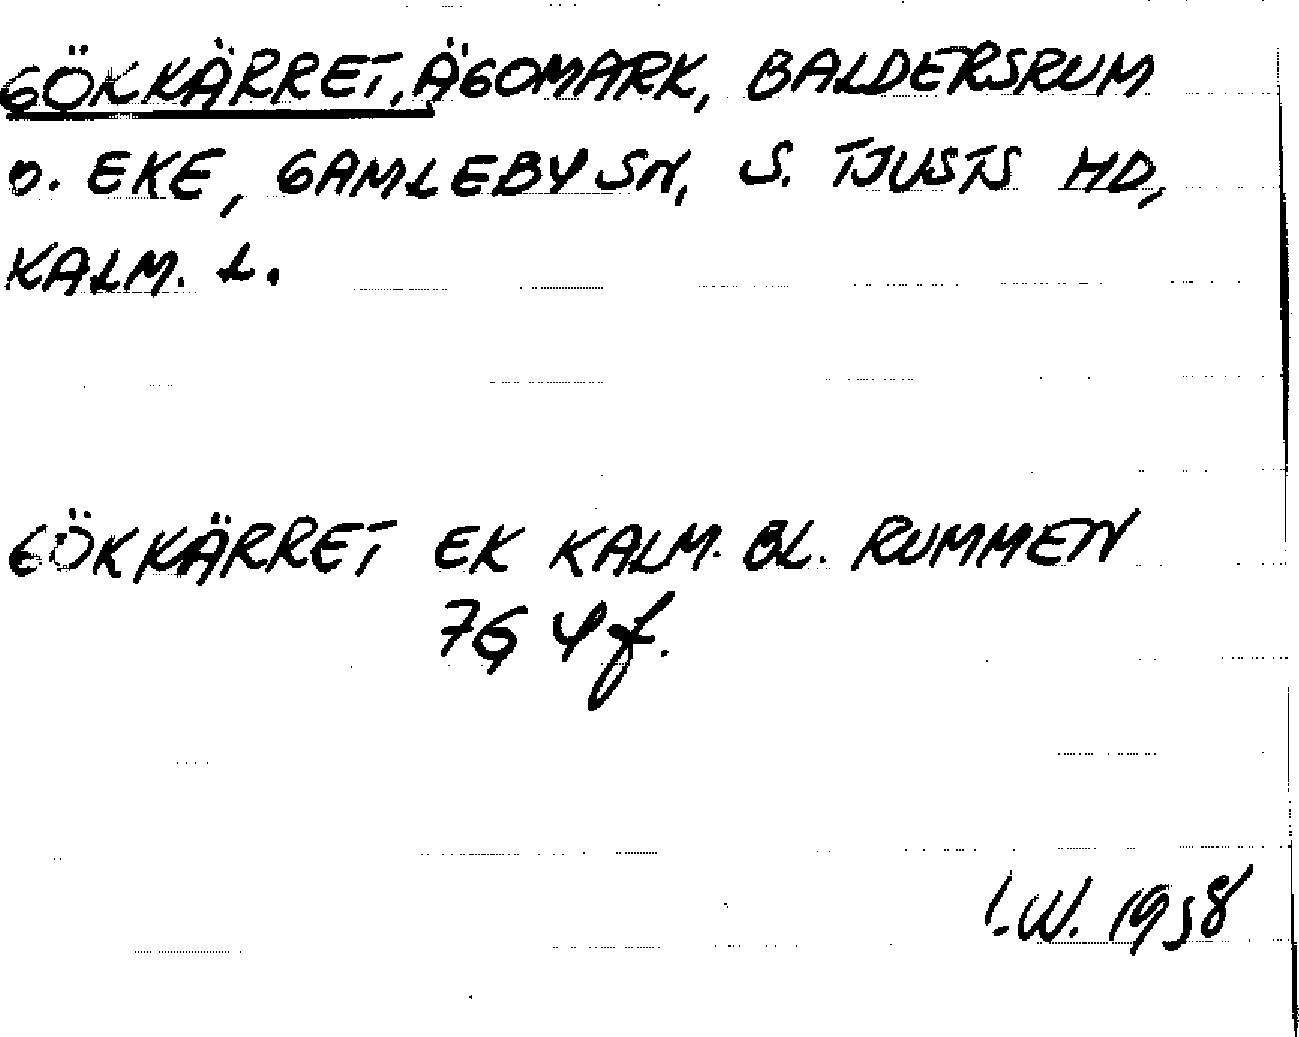 GÖKKÄRRET, ÄGOMARK, BALDERSRUM
O. EKE, GAMLEBY SN, S. TJUSTS HD,
KALM. L.
GÖKKÄRRET EK KALM. BL. RUMMEN
7G 4f.
I.W. 1958